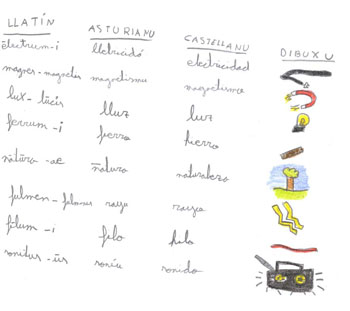 LLATÍN ASTURIANU CASTELLANU DIBUXU
ēlectrum-i lletricidá electricidad
magnes - magnetis magnetismu magnetismo
lux - lūcis lluz luz
ferrum - i fierro hierro
nātūra - ae natura naturaleza
fulmen - rayu
fīlum - i filo hilo
sonitus - ūs soníu sonido